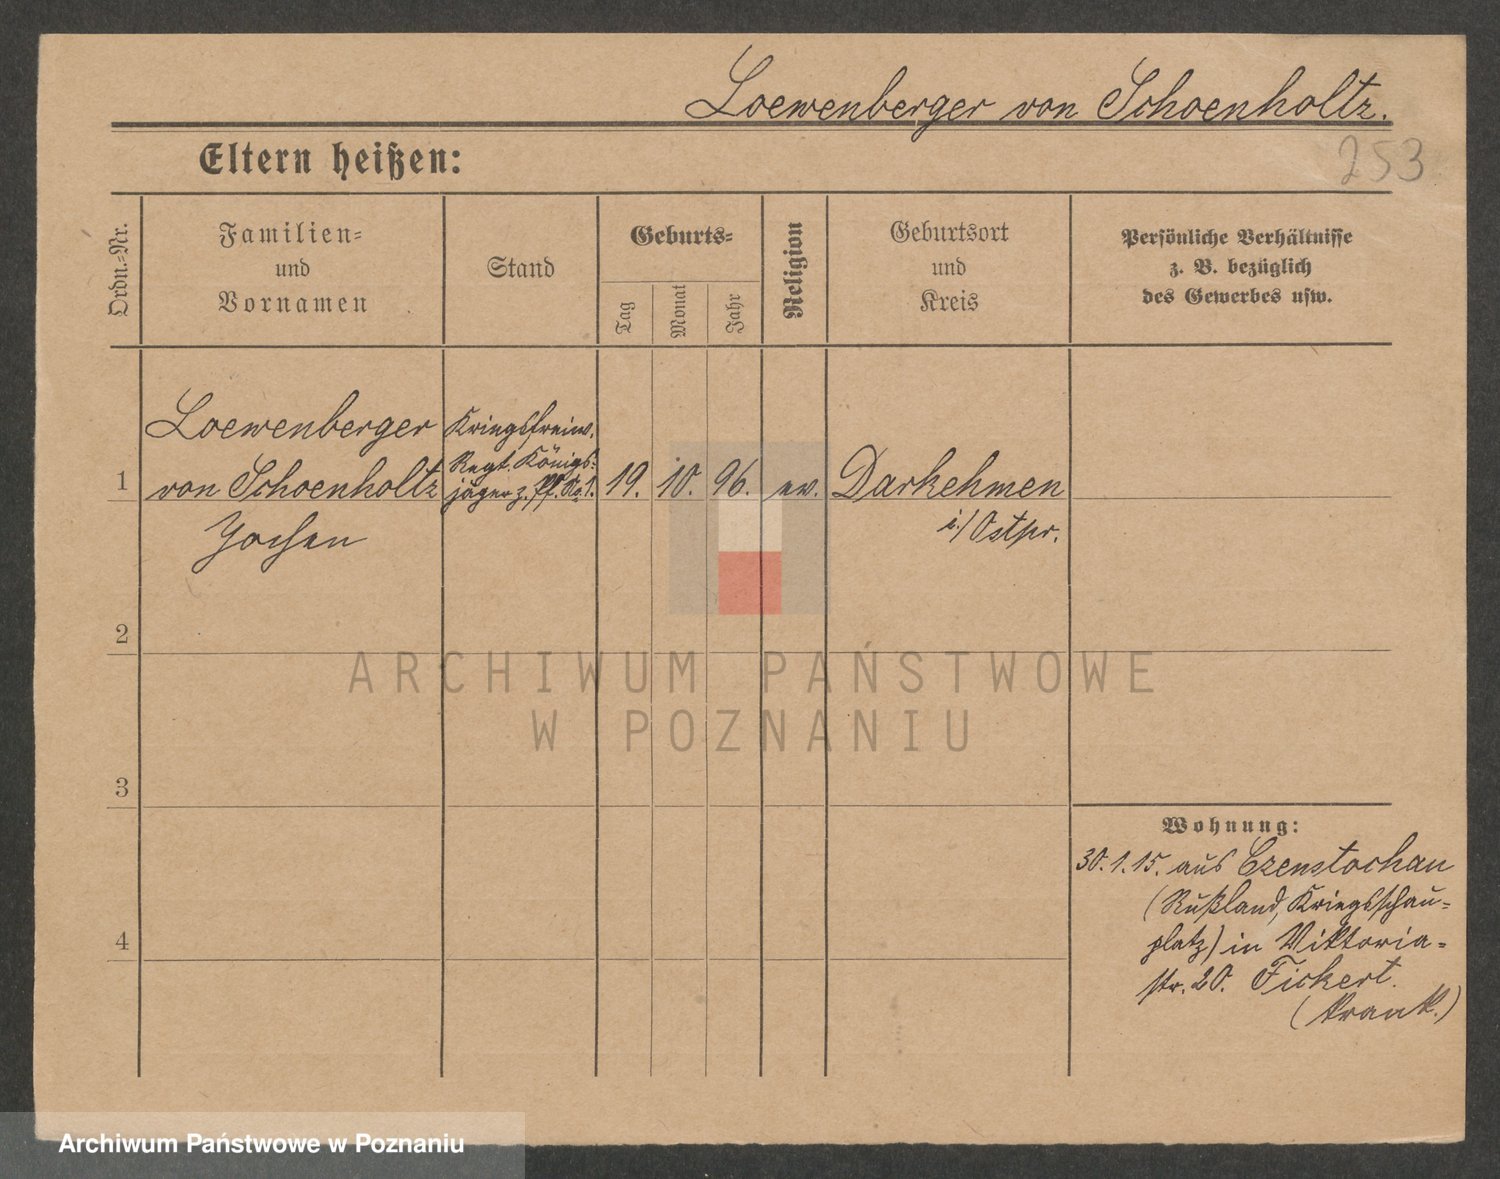 Loewenberger von Schoenholtz.
253
Eltern heißen:
Ordn.-Nr.
Familien-
und
Vornamen
Stand
Geburts-
Tag
Monat
Jahr
Religion
Geburtsort
und
Kreis
Persönliche Verhältnisse
z. B. bezüglich
des Gewerbes usw.
1
Loewenberger
von Schoenholtz
Jochen
Kriegsfreiw.
Regt. Königs-
jäger z. Pf. No 1.
19.
10.
96.
ev.
Darkehmen
i/Ostpr.
2
3
4
Wohnung:
30.1.15. aus Czenstochau
(Rußland, Kriegsschau-
platz) in Viktoria-
str. 20. Fickert.
(krank.)
ARCHIWUM PAŃSTWOWE
W POZNANIU
Archiwum Państwowe w Poznaniu